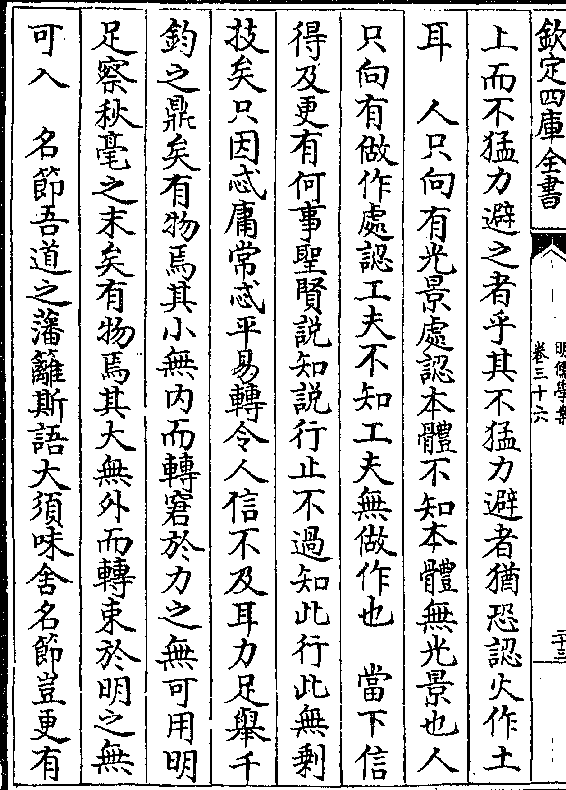 欽定四庫全書
明儒學案
卷三十六
二十三
上而不猛力避之者乎其不猛力避者猶恐認火作土
耳　人只向有光景處認本體不知本體無光景也人
只向有做作處認工夫不知工夫無做作也　當下信
得及更有何事聖賢說知說行止不過知此行此無剩
技矣只因忒庸常忒平易轉令人信不及耳力足舉千
鈞之鼎矣有物焉其小無內而轉窘於力之無可用明
足察秋毫之末矣有物焉其大無外而轉束於明之無
可入　名節吾道之藩籬斯語大須味舍名節豈更有